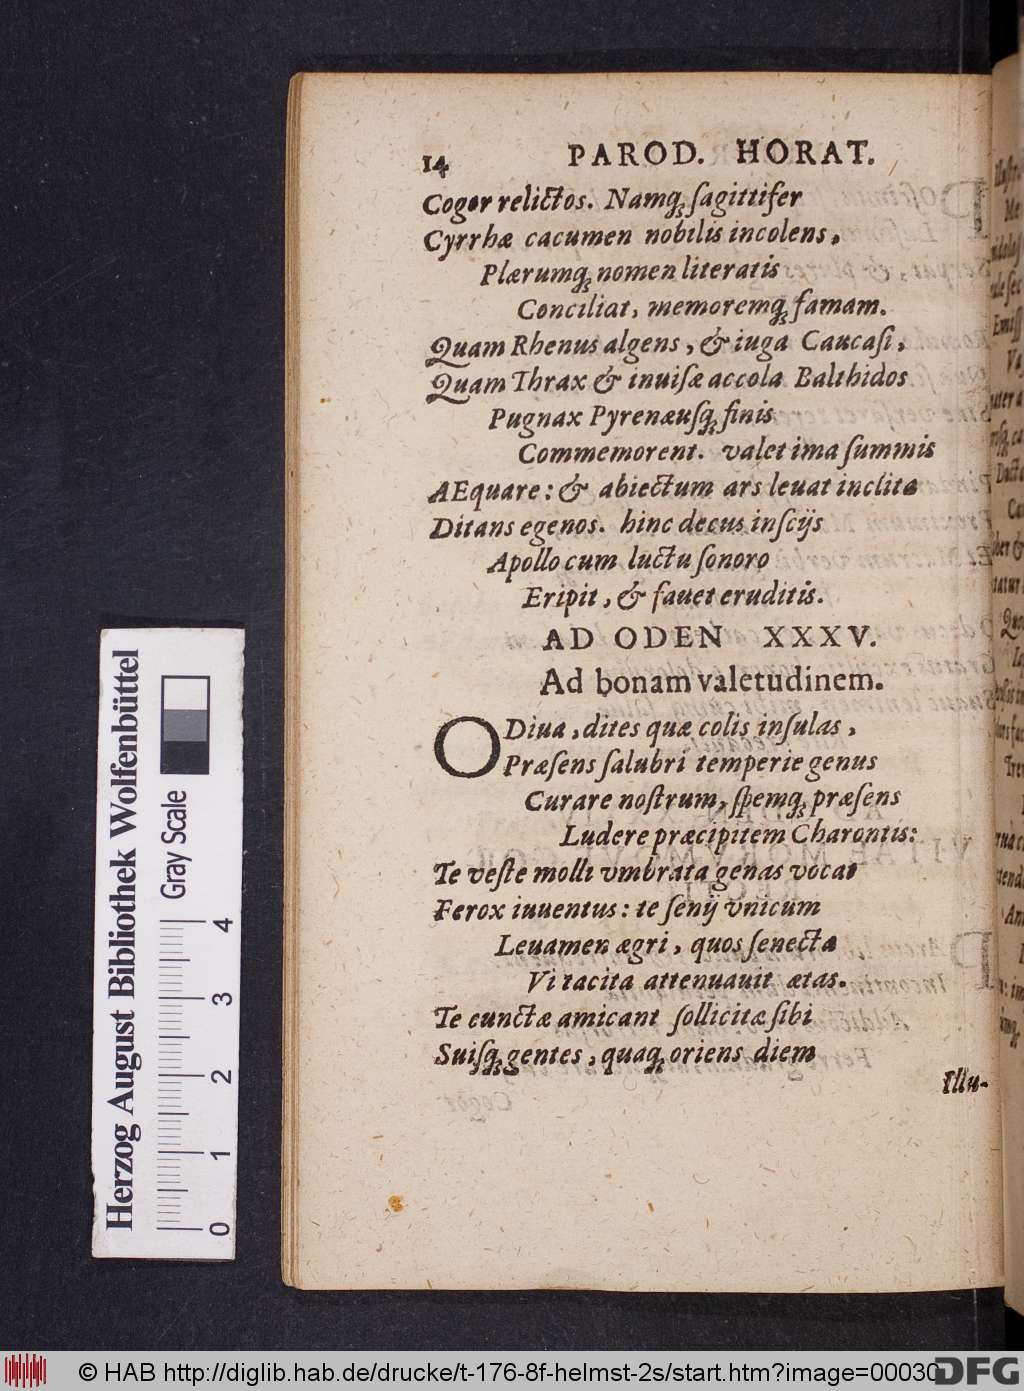 14 PAROD. HORAT.
Cogor relictos. Namqꝫ ſagittifer
Cyrrhæ cacumen nobilis incolens,
Plærumqꝫ nomen literatis
Conciliat, memoremqꝫ famam.
Quam Rhenus algens, & iuga Caucaſi,
Quam Thrax & inuiſæ accola Balthidos
Pugnax Pyrenæuſqꝫ finis
Commemorent. valet ima ſummis
AEquare: & abiectum ars leuat inclita
Ditans egenos. hinc decus inſcijs
Apollo cum luctu ſonoro
Eripit, & fauet eruditis.
AD ODEN XXXV.
Ad bonam valetudinem.
O Diua, dites quæ colis inſulas,
Præſens ſalubri temperie genus
Curare noſtrum, ſpemqꝫ præſens
Ludere præcipitem Charontis:
Te veſte molli vmbrata genas vocat
Ferox iuuentus: te ſenij vnicum
Leuamen ægri, quos ſenecta
Vi tacita attenuauit ætas.
Te cunctæ amicant ſollicitæ ſibi
Suiſqꝫ gentes, quaqꝫ oriens diem
Illu-
Herzog August Bibliothek Wolfenbüttel
Gray Scale
0 1 2 3 4
© HAB http://diglib.hab.de/drucke/t-176-8f-helmst-2s/start.htm?image=00030
DFG